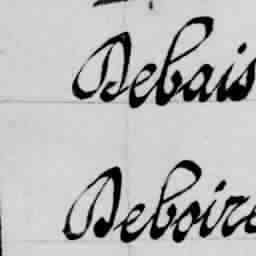 Debais
Deboire